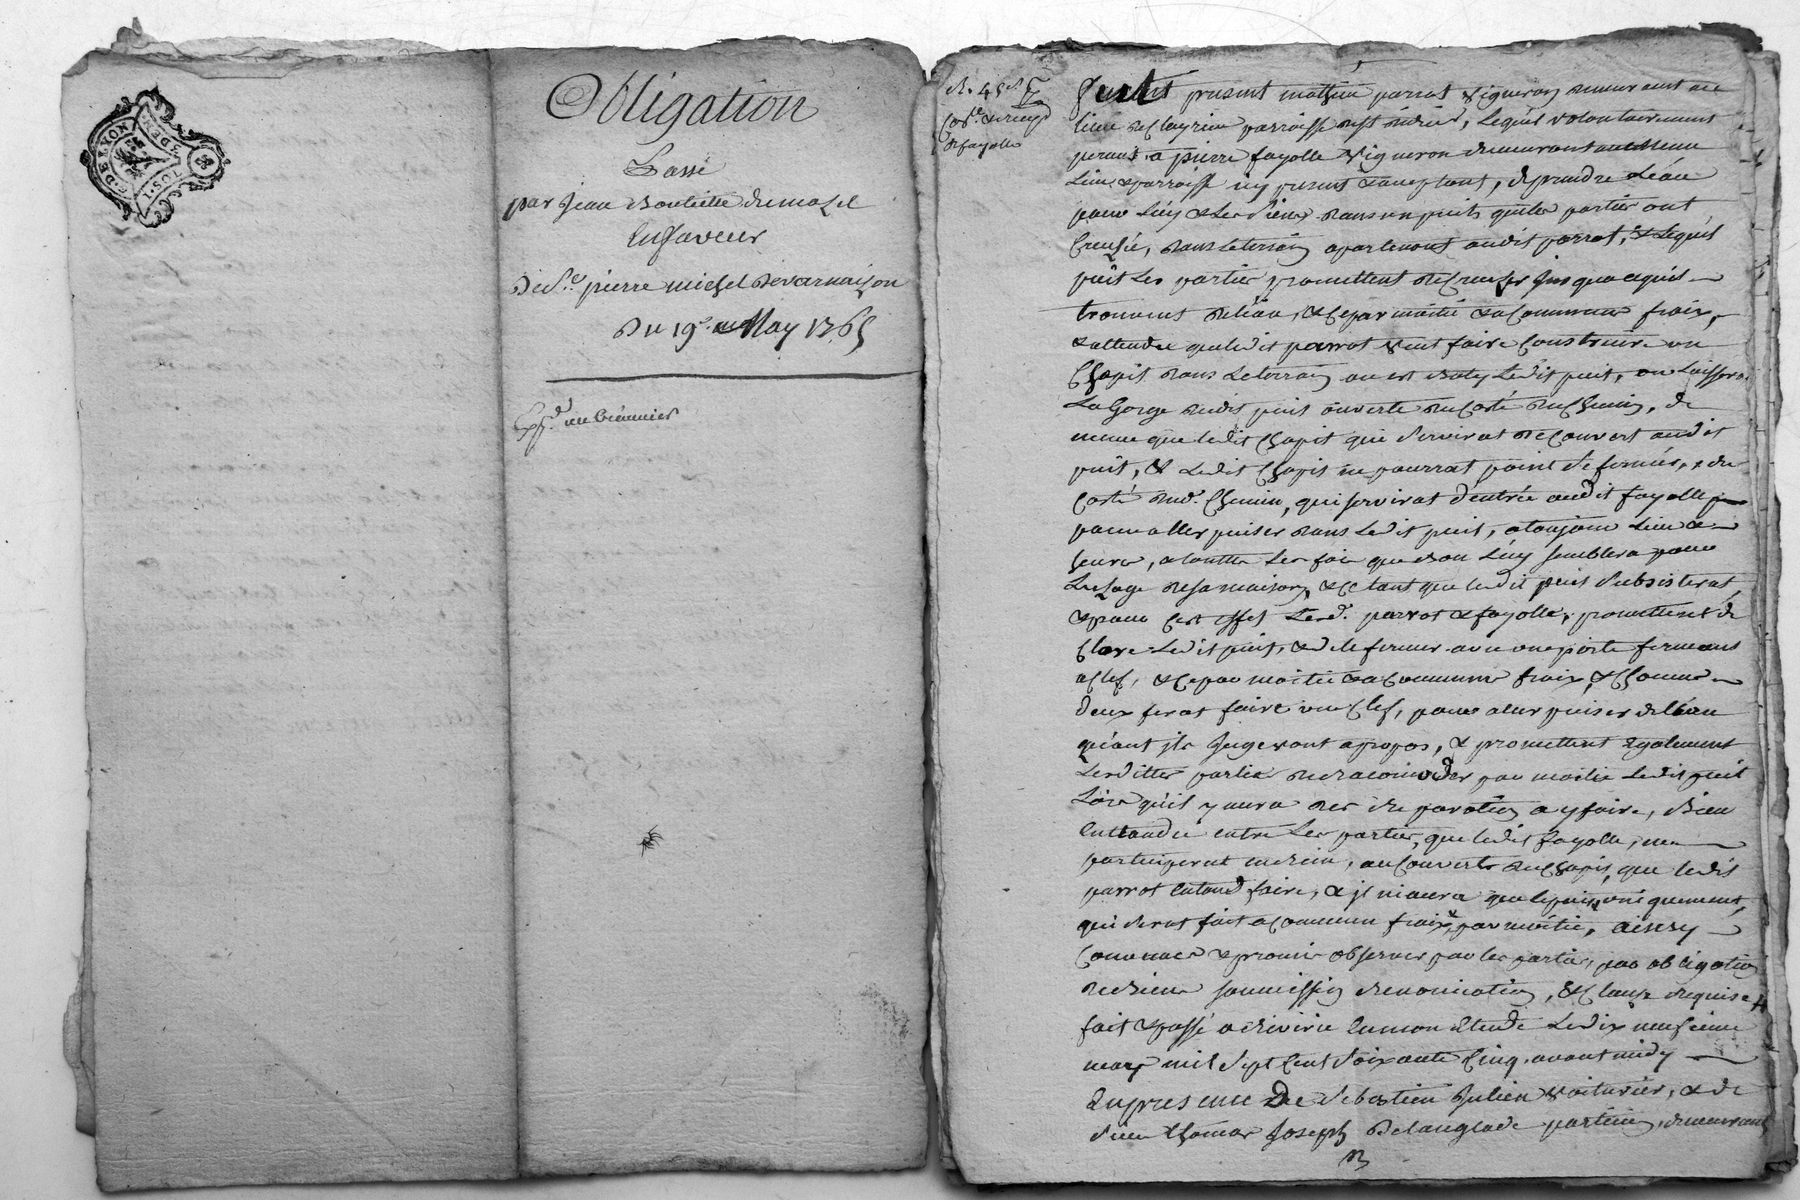 G. DE LYON
3 DEN.
SOLS.
Obligation
Passé
par Jean Bouteille du mazel
En faveur
De Sr. pierre michel Devarnaison
Du 19e. May 1765
Expd. au Créancier
fayolle
fut présent mathieu parrot vigneron demeurant au
lieu de parroisse de St didier, Lequel volontairement
permet a pierre fayolle vigneron demeurant au même
Lieu & parroisse icy présent & acceptant, de prendre Léau
pour Luy & Les siens dans un puits que les parties ont
Creusé, dans le terrain apartenant audit parrot, & Lequel
puit Les parties promettent de Creuser jusqua a quils
trouvent de léau, & ce par moitié & a communs fraix,
& attendu que ledit parrot veut faire Construire un
Chapit dans Le terrain ou est Ledit puit, on Laissera
La Gorge dudit puit ouverte du Costé du Chemin, de
meme que ledit Chapit qui servirat de Couvert audit
puit, & Ledit Chapit ne pourrat point se fermer, du
Costé dud. Chemin, qui servirat d'entrée audit fayolle
pour aller puiser dans Ledit puit, a toujour Lieu &
heure, a toutte Les fois que bon Luy semblera pour
Lusage de sa maison, & ce tant que ledit puit subsisterat,
& pour cet effet Lesd. parrot & fayolle, promettent de
Clore Ledit puit, & de le fermer avec une porte fermant
a Clef, & ce par moitié & a Communs fraix, & Chacun
deux ferat faire une Clef, pour aller puiser de léau
quant ils Jugeront apropos, & promettent Egalement
Lesdittes parties de racomoder par moitié Ledit puit
Lors quil y aura des reparations a y faire, Bien
Entendu entre Les parties, que ledit fayolle, ne
participerat en rien, au Couvert du Chapit, que ledit
parrot Entend faire, & il n'aura que le puit uniquement,
qui serat fait a Commun fraix par moitié, ainsy
Convenu & promis observer par les parties, par obligation
de biens soumission renonciation, & Clause requise
fait & passé a Riverie En mon Etude Le dix neufieme
mars mil sept Cent Soixante Cinq, avant midy
En presence De Sebastien Julien voiturier, & de
sieur thomas Joseph Delanglade praticien, demeurant